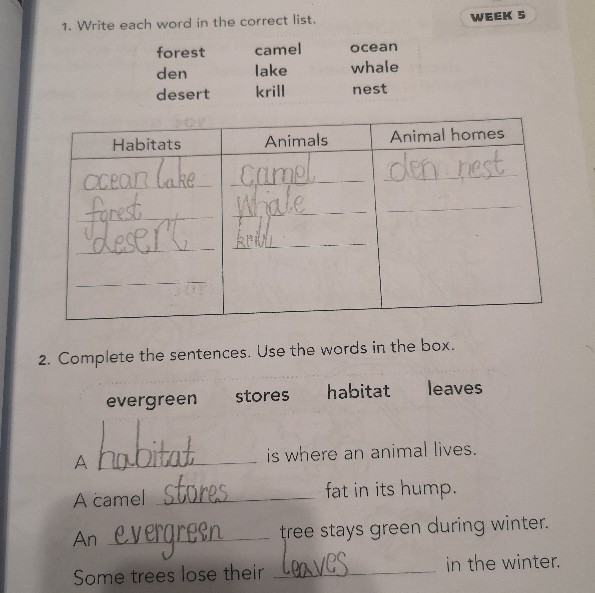 1. Write each word in the correct list.
WEEK 5
forest camel ocean
den lake whale
desert krill nest
Habitats Animals Animal homes
ocean lake camel den nest
forest whale
desert krill
2. Complete the sentences. Use the words in the box.
evergreen stores habitat leaves
A habitat is where an animal lives.
A camel stores fat in its hump.
An evergreen tree stays green during winter.
Some trees lose their leaves in the winter.